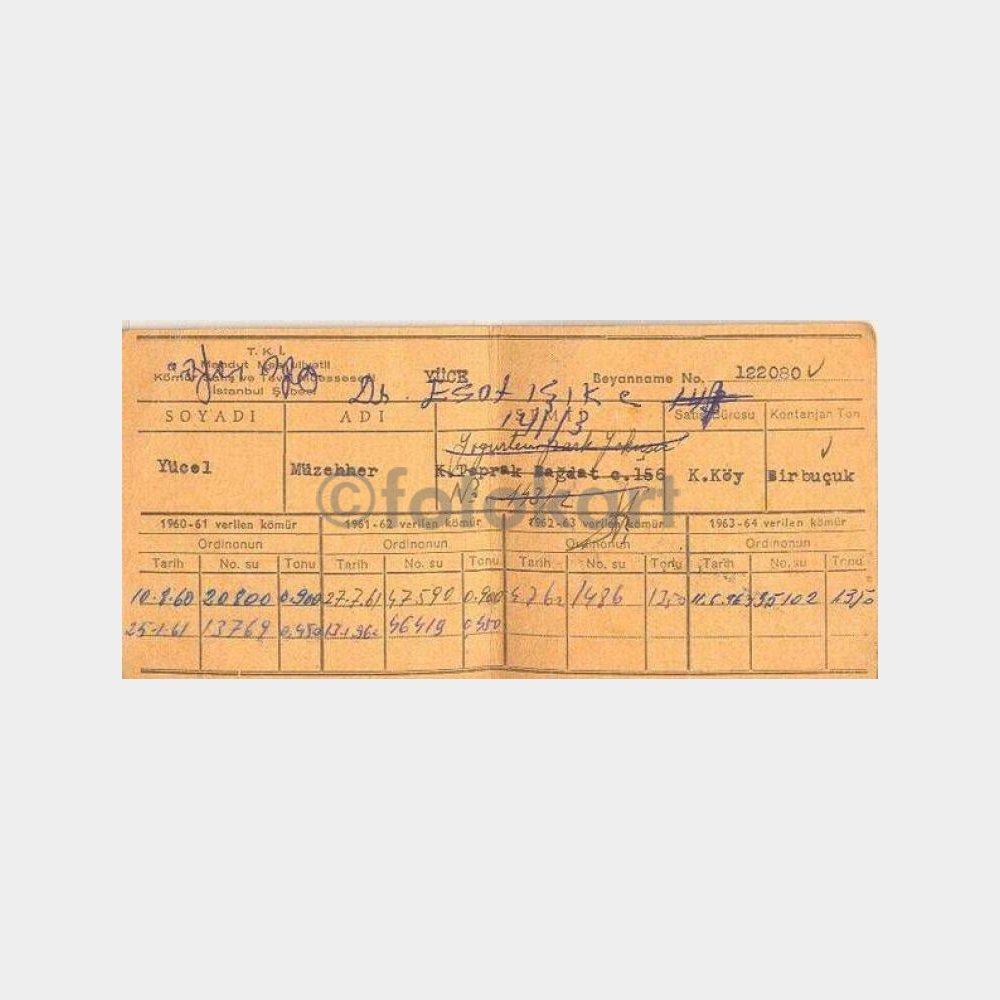 T. K. İ.
Mahdut Mes'uliyetli
Kömür Satış ve Tevzi Müessesesi
İstanbul Şubesi
YÜCE
Beyanname No. 122080
Dr. Esat Işık c
SOYADI ADI 141/3 Satış Bürosu Kontenjan Ton
Yücel Müzehher K.Toprak Bağdat c.156 K.Köy Birbuçuk
No 143/2
©fotokart
1960-61 verilen kömür 1961-62 verilen kömür 1962-63 verilen kömür 1963-64 verilen kömür
Ordinonun Ordinonun Ordinonun Ordinonun
Tarih No. su Tonu Tarih No. su Tonu Tarih No. su Tonu Tarih No. su Tonu
10-8-60 20800 0.900 27-7-61 47590 0.900 1486 1350 35102 1350
25-1-61 13769 0.450 46419 0.450